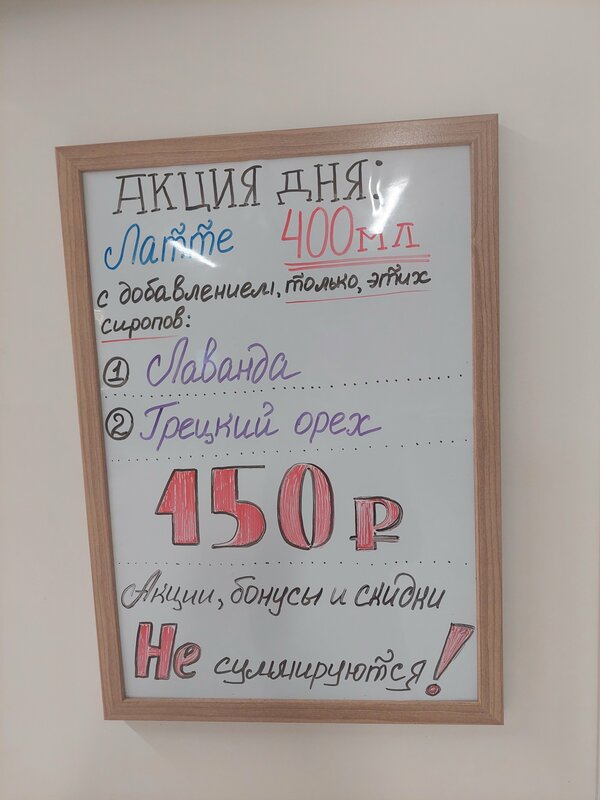 АКЦИЯ ДНЯ:
Латте 400мл
с добавлением, только, этих
сиропов:
1 Лаванда
2 Грецкий орех
150 ₽
Акции, бонусы и скидки
Не суммируются!